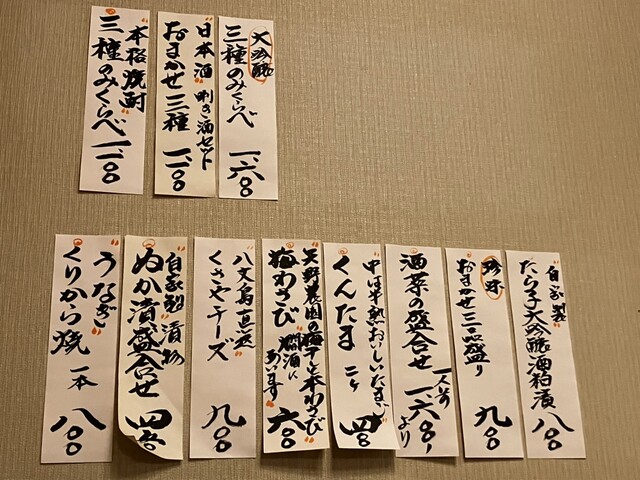 大吟醸
三種のみくらべ 一、六〇〇
日本酒 唎き酒セット
おまかせ三種 一、一〇〇
本格焼酎
三種のみくらべ 一、一〇〇
自家製
たら子大吟醸酒粕漬 八〇〇
珍味
おまかせ三品盛り 九〇〇
酒菜の盛合せ 一人前 一、六〇〇より
中は半熟おいしいたまご
くんたま 二ヶ 四〇〇
天野農園の梅干と本わさび
梅わさび 六〇〇
燗酒にあいます
八丈島直送
くさやチーズ 九〇〇
自家製 漬物
ぬか漬盛合せ 四〇〇
うなぎ
くりから焼 一本 八〇〇